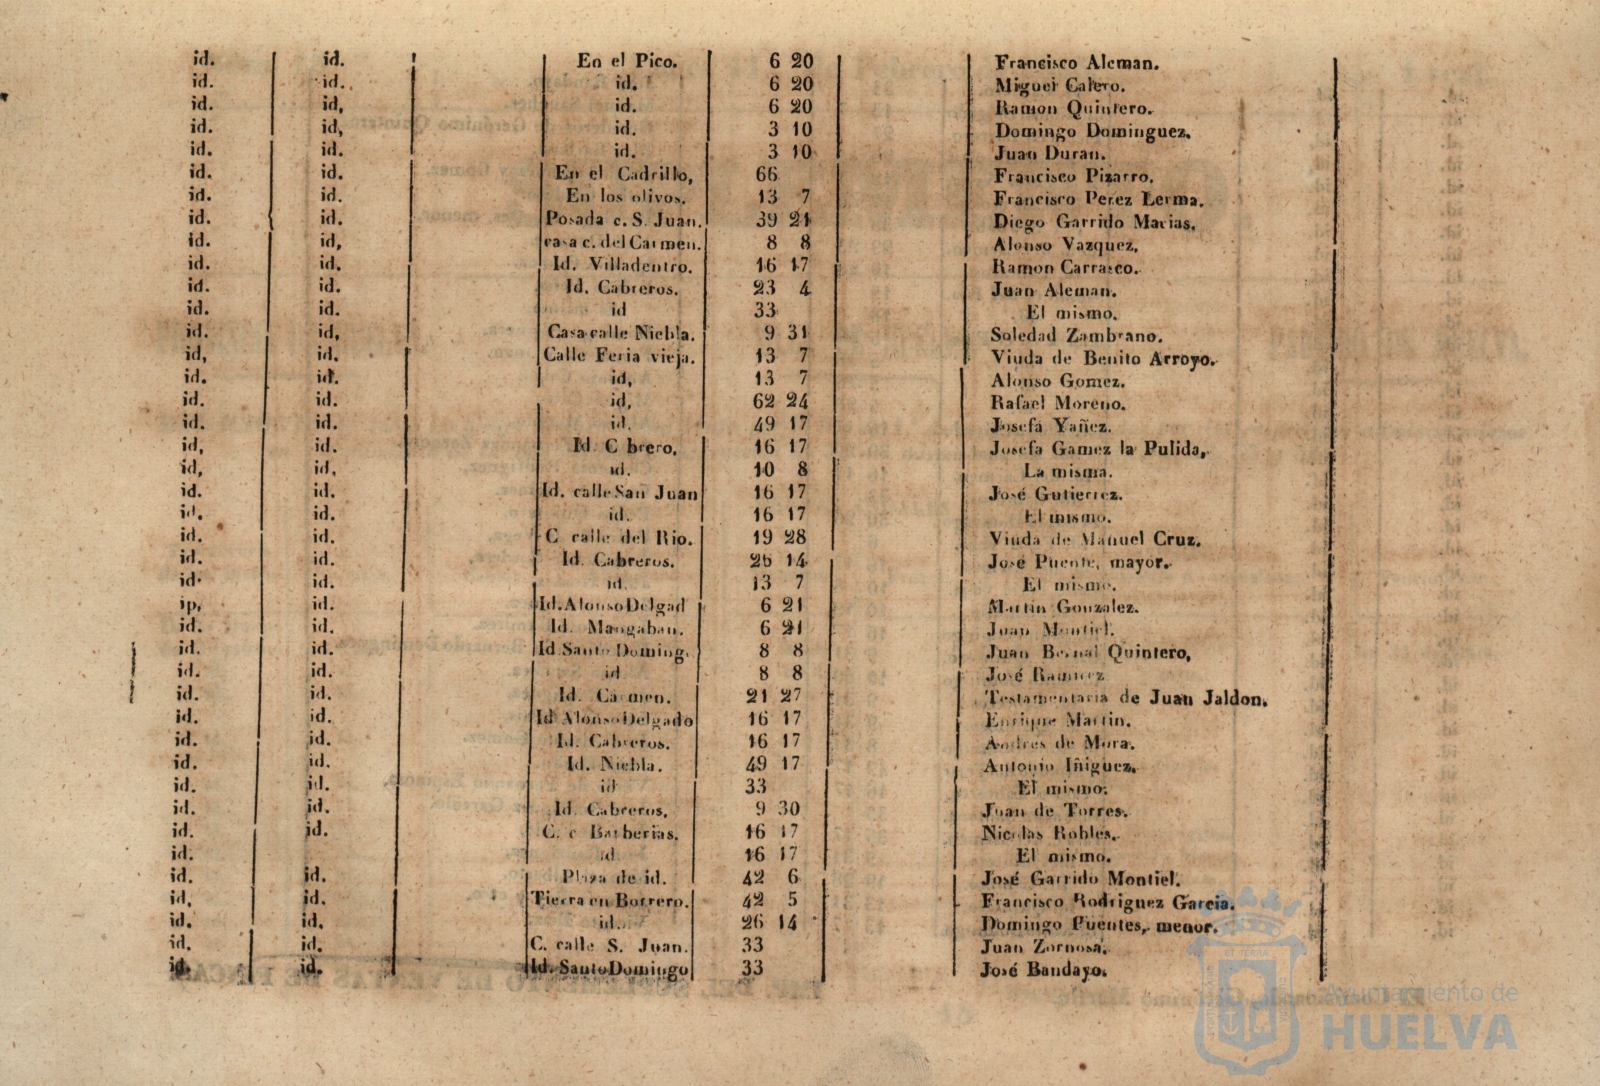 id. id. En el Pico. 6 20 Francisco Aleman.
id. id. id. 6 20 Miguel Calero.
id. id, id. 6 20 Ramon Quintero.
id. id, id. 3 10 Domingo Dominguez.
id. id. id. 3 10 Juan Duran.
id. id. En el Cadrillo, 66 Francisco Pizarro.
id. id. En los olivos. 13 7 Francisco Perez Lerma.
id. id. Posada c. S. Juan. 39 21 Diego Garrido Macias.
id. id, casa c. del Carmen. 8 8 Alonso Vazquez.
id. id. Id. Villadentro. 16 17 Ramon Carrasco.
id. id. Id. Cabreros. 23 4 Juan Aleman.
id. id. id 33 El mismo.
id. id, Casa calle Niebla. 9 31 Soledad Zambrano.
id, id. Calle Feria vieja. 13 7 Viuda de Benito Arroyo.
id. id. id, 13 7 Alonso Gomez.
id. id. id, 62 24 Rafael Moreno.
id. id. id. 49 17 Josefa Yañez.
id, id. Id. C brero, 16 17 Josefa Gamez la Pulida,
id, id. id. 10 8 La misma.
id. id. Id. calle San Juan 16 17 José Gutierrez.
id. id. id. 16 17 El mismo.
id. id. C calle del Rio. 19 28 Viuda de Manuel Cruz.
id. id. Id. Cabreros. 26 14 José Puente, mayor.
id. id. id. 13 7 El mismo.
ip, id. Id. Alonso Delgad 6 21 Martin Gonzalez.
id. id. Id. Mangaban. 6 21 Juan Montiel.
id. id. Id Santo Doming. 8 8 Juan Bernal Quintero,
id. id. id 8 8 José Ramirez
id. id. Id. Carmen. 21 27 Testamentaria de Juan Jaldon.
id. id. Id Alonso Delgado 16 17 Enrique Martin.
id. id. Id. Cabreros. 16 17 Andres de Mora.
id. id. Id. Niebla. 49 17 Antonio Iñiguez.
id. id. id 33 El mismo.
id. id. Id. Cabreros, 9 30 Juan de Torres.
id. id. C. c Barberias. 16 17 Nicolas Robles.
id. id. 16 17 El mismo.
id. id. Plaza de id. 42 6 José Garrido Montiel.
id, id. Tierra en Borrero. 42 5 Francisco Rodriguez Garcia.
id. id. id. 26 14 Domingo Puentes, menor.
id. id. C. calle S. Juan. 33 Juan Zornosa.
id. id. Id. Santo Domingo 33 José Bandayo.
Ayuntamiento de
HUELVA